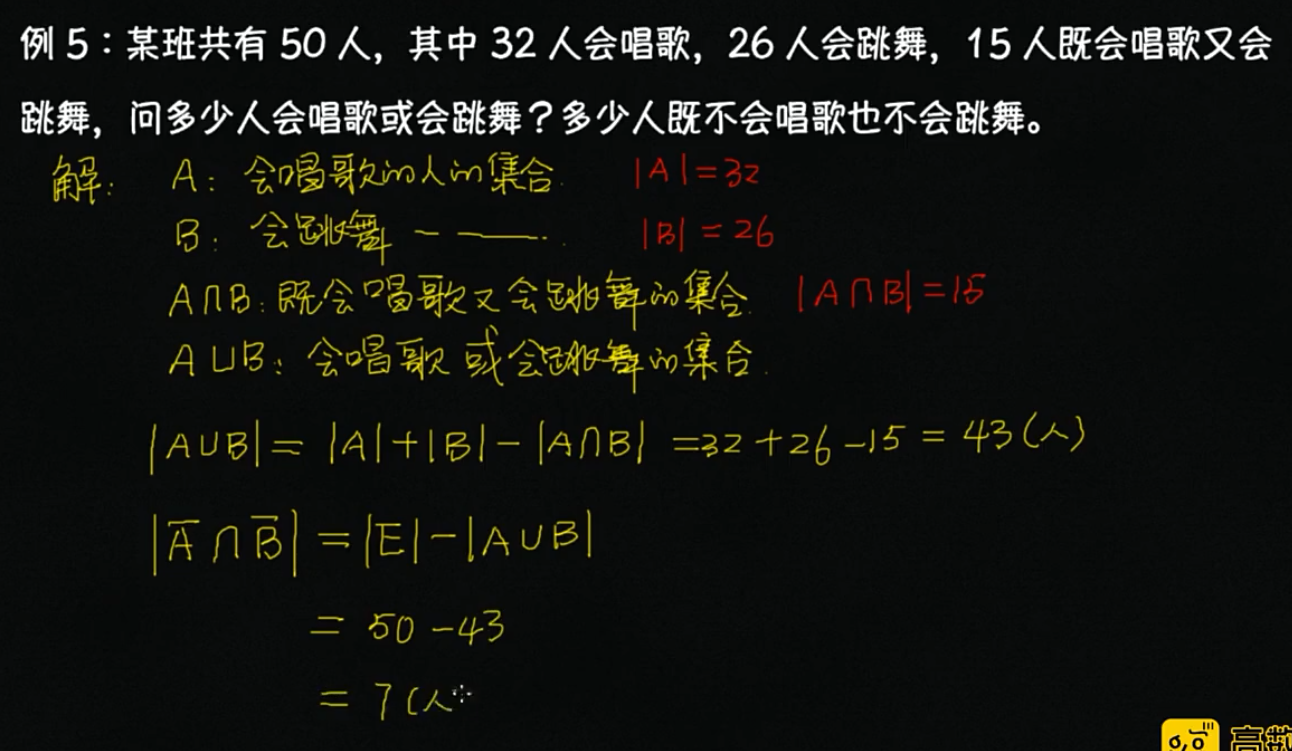 例 5：某班共有 50 人，其中 32 人会唱歌，26 人会跳舞，15 人既会唱歌又会
跳舞，问多少人会唱歌或会跳舞？多少人既不会唱歌也不会跳舞。
解: A: 会唱歌的人的集合. |A|=32
B: 会跳舞 — ——. |B|=26
A∩B:既会唱歌又会跳舞的集合. |A∩B|=15
A∪B: 会唱歌或会跳舞的集合.
|A∪B|= |A|+|B|-|A∩B| =32+26-15=43(人)
|A̅∩B̅|=|E|-|A∪B|
= 50-43
= 7(人
高数